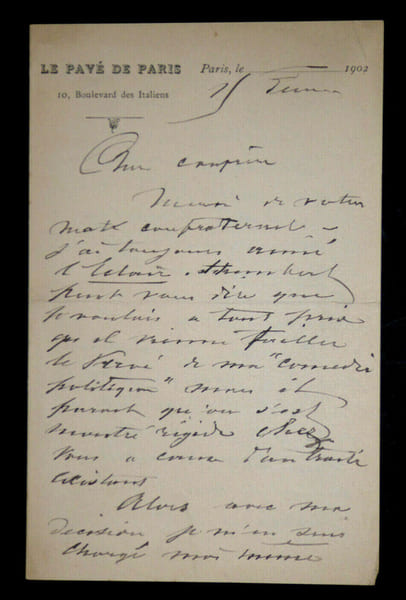 LE PAVÉ DE PARIS Paris, le 1902
10, Boulevard des Italiens
15
Cher confrère
Merci de votre
mot confraternel
j'ai toujours aimé
l'Eclair. Humbert
peut vous dire que
je voulais à tout prix
qu'il vienne
le Pavé de ma "comédie
politique" mais il
parait que l'on s'est
montré rigide chez
vous a cause d'un traité
existant
Alors avec ma
décision je m'en suis
chargé moi même